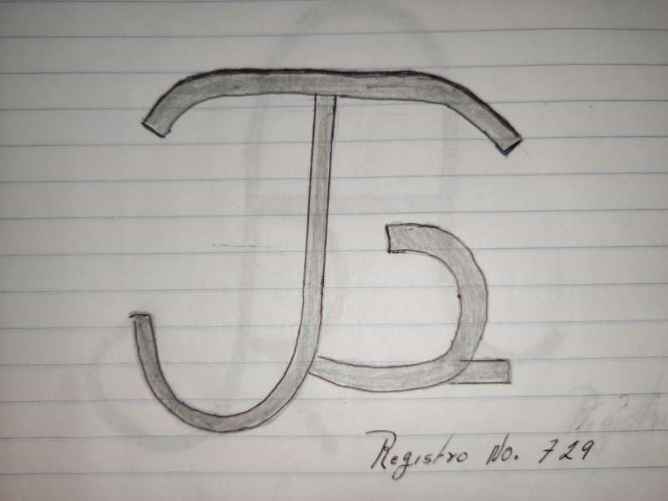 Registro No. 729